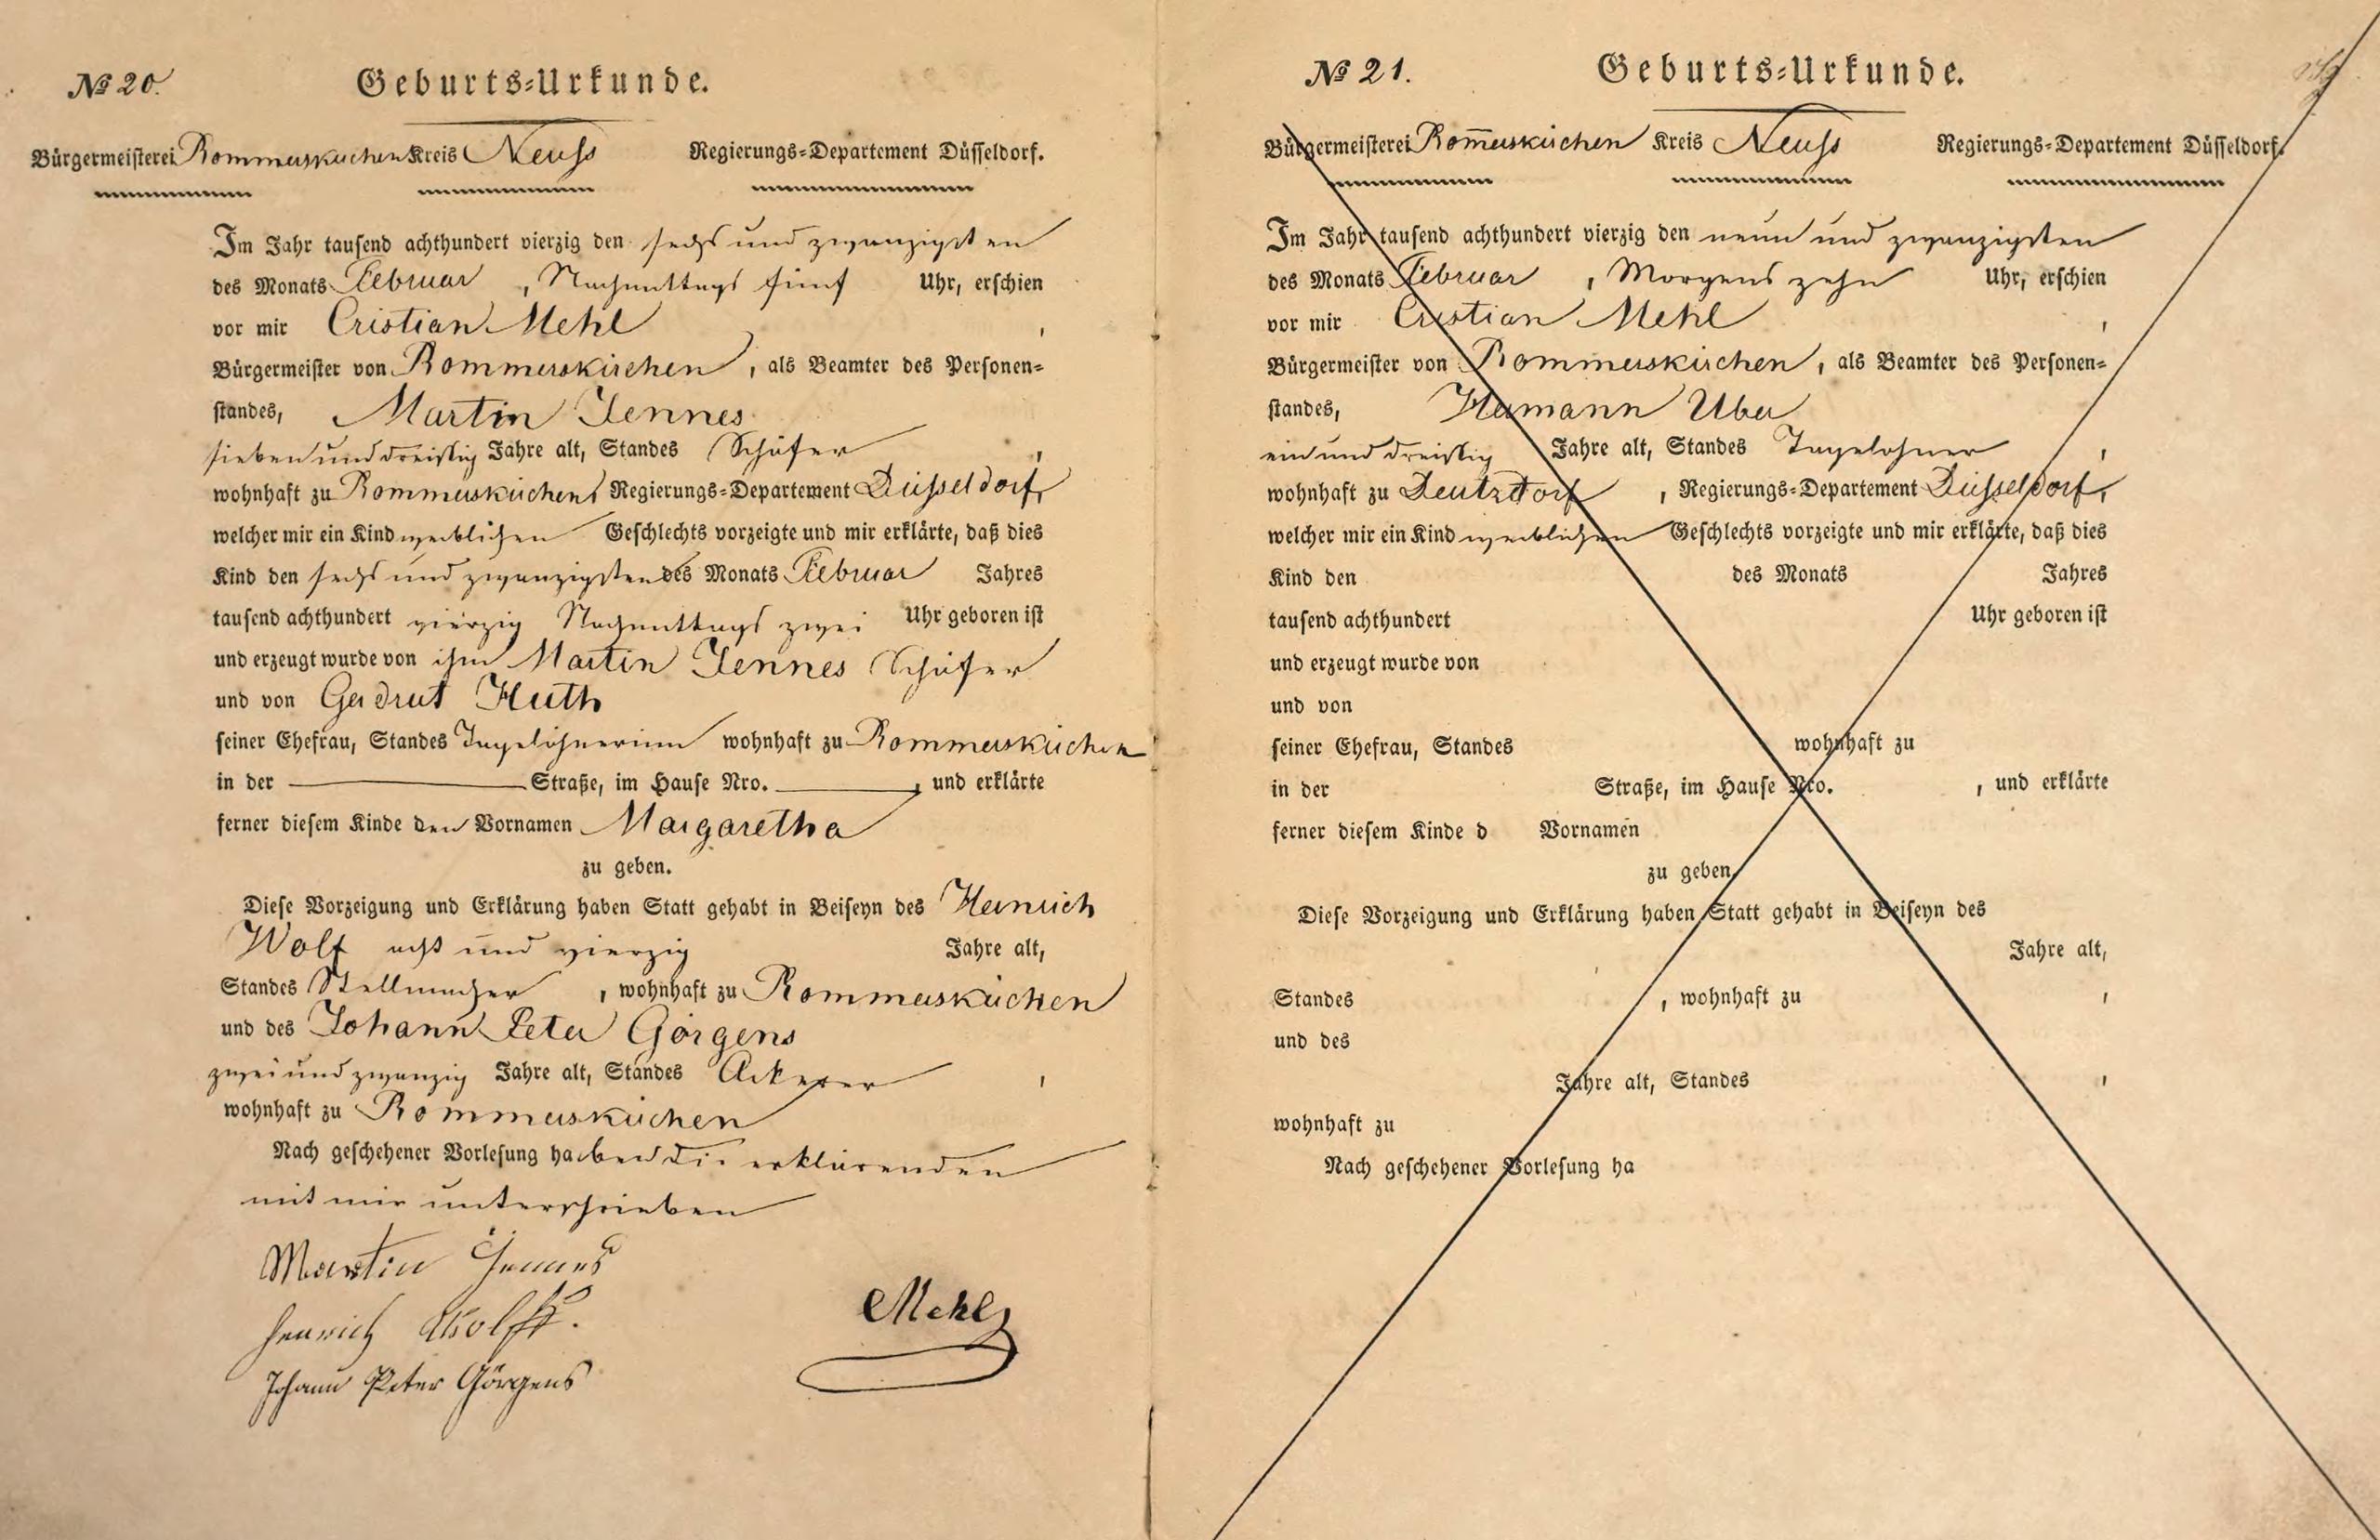 № 20. Geburts=Urkunde.
Bürgermeisterei Rommerskirchen Kreis Neuss Regierungs=Departement Düsseldorf.
Im Jahr tausend achthundert vierzig den sechs und zwanzigsten
des Monats Februar, Nachmittags fünf Uhr, erschien
vor mir Cristian Mehl,
Bürgermeister von Rommerskirchen, als Beamter des Personen=
standes, Martin Jennes
sieben und dreissig Jahre alt, Standes Schäfer,
wohnhaft zu Rommerskirchen, Regierungs=Departement Düsseldorf,
welcher mir ein Kind weiblichen Geschlechts vorzeigte und mir erklärte, daß dies
Kind den sechs und zwanzigsten des Monats Februar Jahres
tausend achthundert vierzig Nachmittags zwei Uhr geboren ist
und erzeugt wurde von ihm Martin Jennes Schäfer
und von Gerdrut Huth
seiner Ehefrau, Standes Tagelöhnerinn wohnhaft zu Rommerskirchen
in der Straße, im Hause Nro. , und erklärte
ferner diesem Kinde den Vornamen Margaretha
zu geben.
Diese Vorzeigung und Erklärung haben Statt gehabt in Beiseyn des Heinrich
Wolf acht und vierzig Jahre alt,
Standes Stellmacher, wohnhaft zu Rommerskirchen
und des Johann Peter Görgens
zwei und zwanzig Jahre alt, Standes Ackerer,
wohnhaft zu Rommerskirchen
Nach geschehener Vorlesung haben die erklärenden
mit mir unterschrieben
Martin Jennes
Henrich Wolff.
Mehl
Johann Peter Görgens
№ 21. Geburts=Urkunde.
Bürgermeisterei Rom̄erskirchen Kreis Neuss Regierungs=Departement Düsseldorf.
Im Jahr tausend achthundert vierzig den neun und zwanzigsten
des Monats Februar, Morgens zehn Uhr, erschien
vor mir Cristian Mehl,
Bürgermeister von Rommerskirchen, als Beamter des Personen=
standes, Hermann Uber
ein und dreissig Jahre alt, Standes Tagelohner,
wohnhaft zu Deutzdorf, Regierungs=Departement Düsseldorf,
welcher mir ein Kind weiblichen Geschlechts vorzeigte und mir erklärte, daß dies
Kind den des Monats Jahres
tausend achthundert Uhr geboren ist
und erzeugt wurde von
und von
seiner Ehefrau, Standes wohnhaft zu
in der Straße, im Hause Nro. , und erklärte
ferner diesem Kinde d Vornamen
zu geben.
Diese Vorzeigung und Erklärung haben Statt gehabt in Beiseyn des
Jahre alt,
Standes , wohnhaft zu ,
und des
Jahre alt, Standes ,
wohnhaft zu
Nach geschehener Vorlesung ha